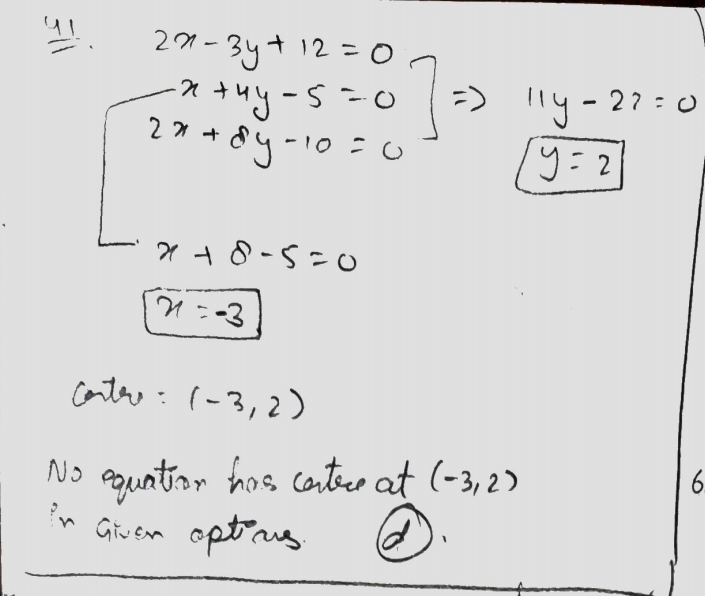 41.
2x - 3y + 12 = 0
x + 4y - 5 = 0 => 11y - 22 = 0
2x + 8y - 10 = 0
y = 2
x + 8 - 5 = 0
x = -3
Centre : (-3, 2)
No equation has centre at (-3, 2)
in Given options. (d).
6